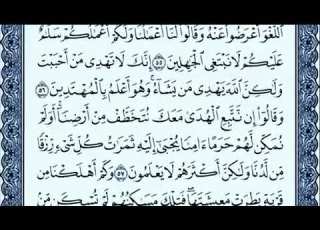 ٱللَّغْوَ أَعْرَضُوا۟ عَنْهُ وَقَالُوا۟ لَنَآ أَعْمَٰلُنَا وَلَكُمْ أَعْمَٰلُكُمْ سَلَٰمٌ
عَلَيْكُمْ لَا نَبْتَغِى ٱلْجَٰهِلِينَ ٥٥ إِنَّكَ لَا تَهْدِى مَنْ أَحْبَبْتَ
وَلَٰكِنَّ ٱللَّهَ يَهْدِى مَن يَشَآءُ ۚ وَهُوَ أَعْلَمُ بِٱلْمُهْتَدِينَ ٥٦
وَقَالُوٓا۟ إِن نَّتَّبِعِ ٱلْهُدَىٰ مَعَكَ نُتَخَطَّفْ مِنْ أَرْضِنَآ ۚ أَوَلَمْ
نُمَكِّن لَّهُمْ حَرَمًا ءَامِنًا يُجْبَىٰٓ إِلَيْهِ ثَمَرَٰتُ كُلِّ شَىْءٍ رِّزْقًا
مِّن لَّدُنَّا وَلَٰكِنَّ أَكْثَرَهُمْ لَا يَعْلَمُونَ ٥٧ وَكَمْ أَهْلَكْنَا مِن
قَرْيَةٍۭ بَطِرَتْ مَعِيشَتَهَا ۖ فَتِلْكَ مَسَٰكِنُهُمْ لَمْ تُسْكَن مِّنۢ